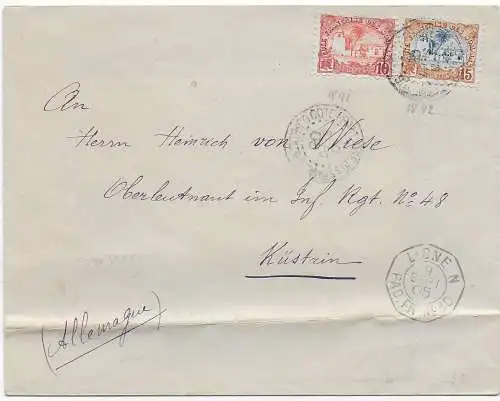 10
15
N 41
N 42
An
Herrn Heinrich von Wiese
Oberleutnant im Inf. Rgt. No 48
Küstrin
LIGNE N
PAQ. FR. No 10
(Allemagne)